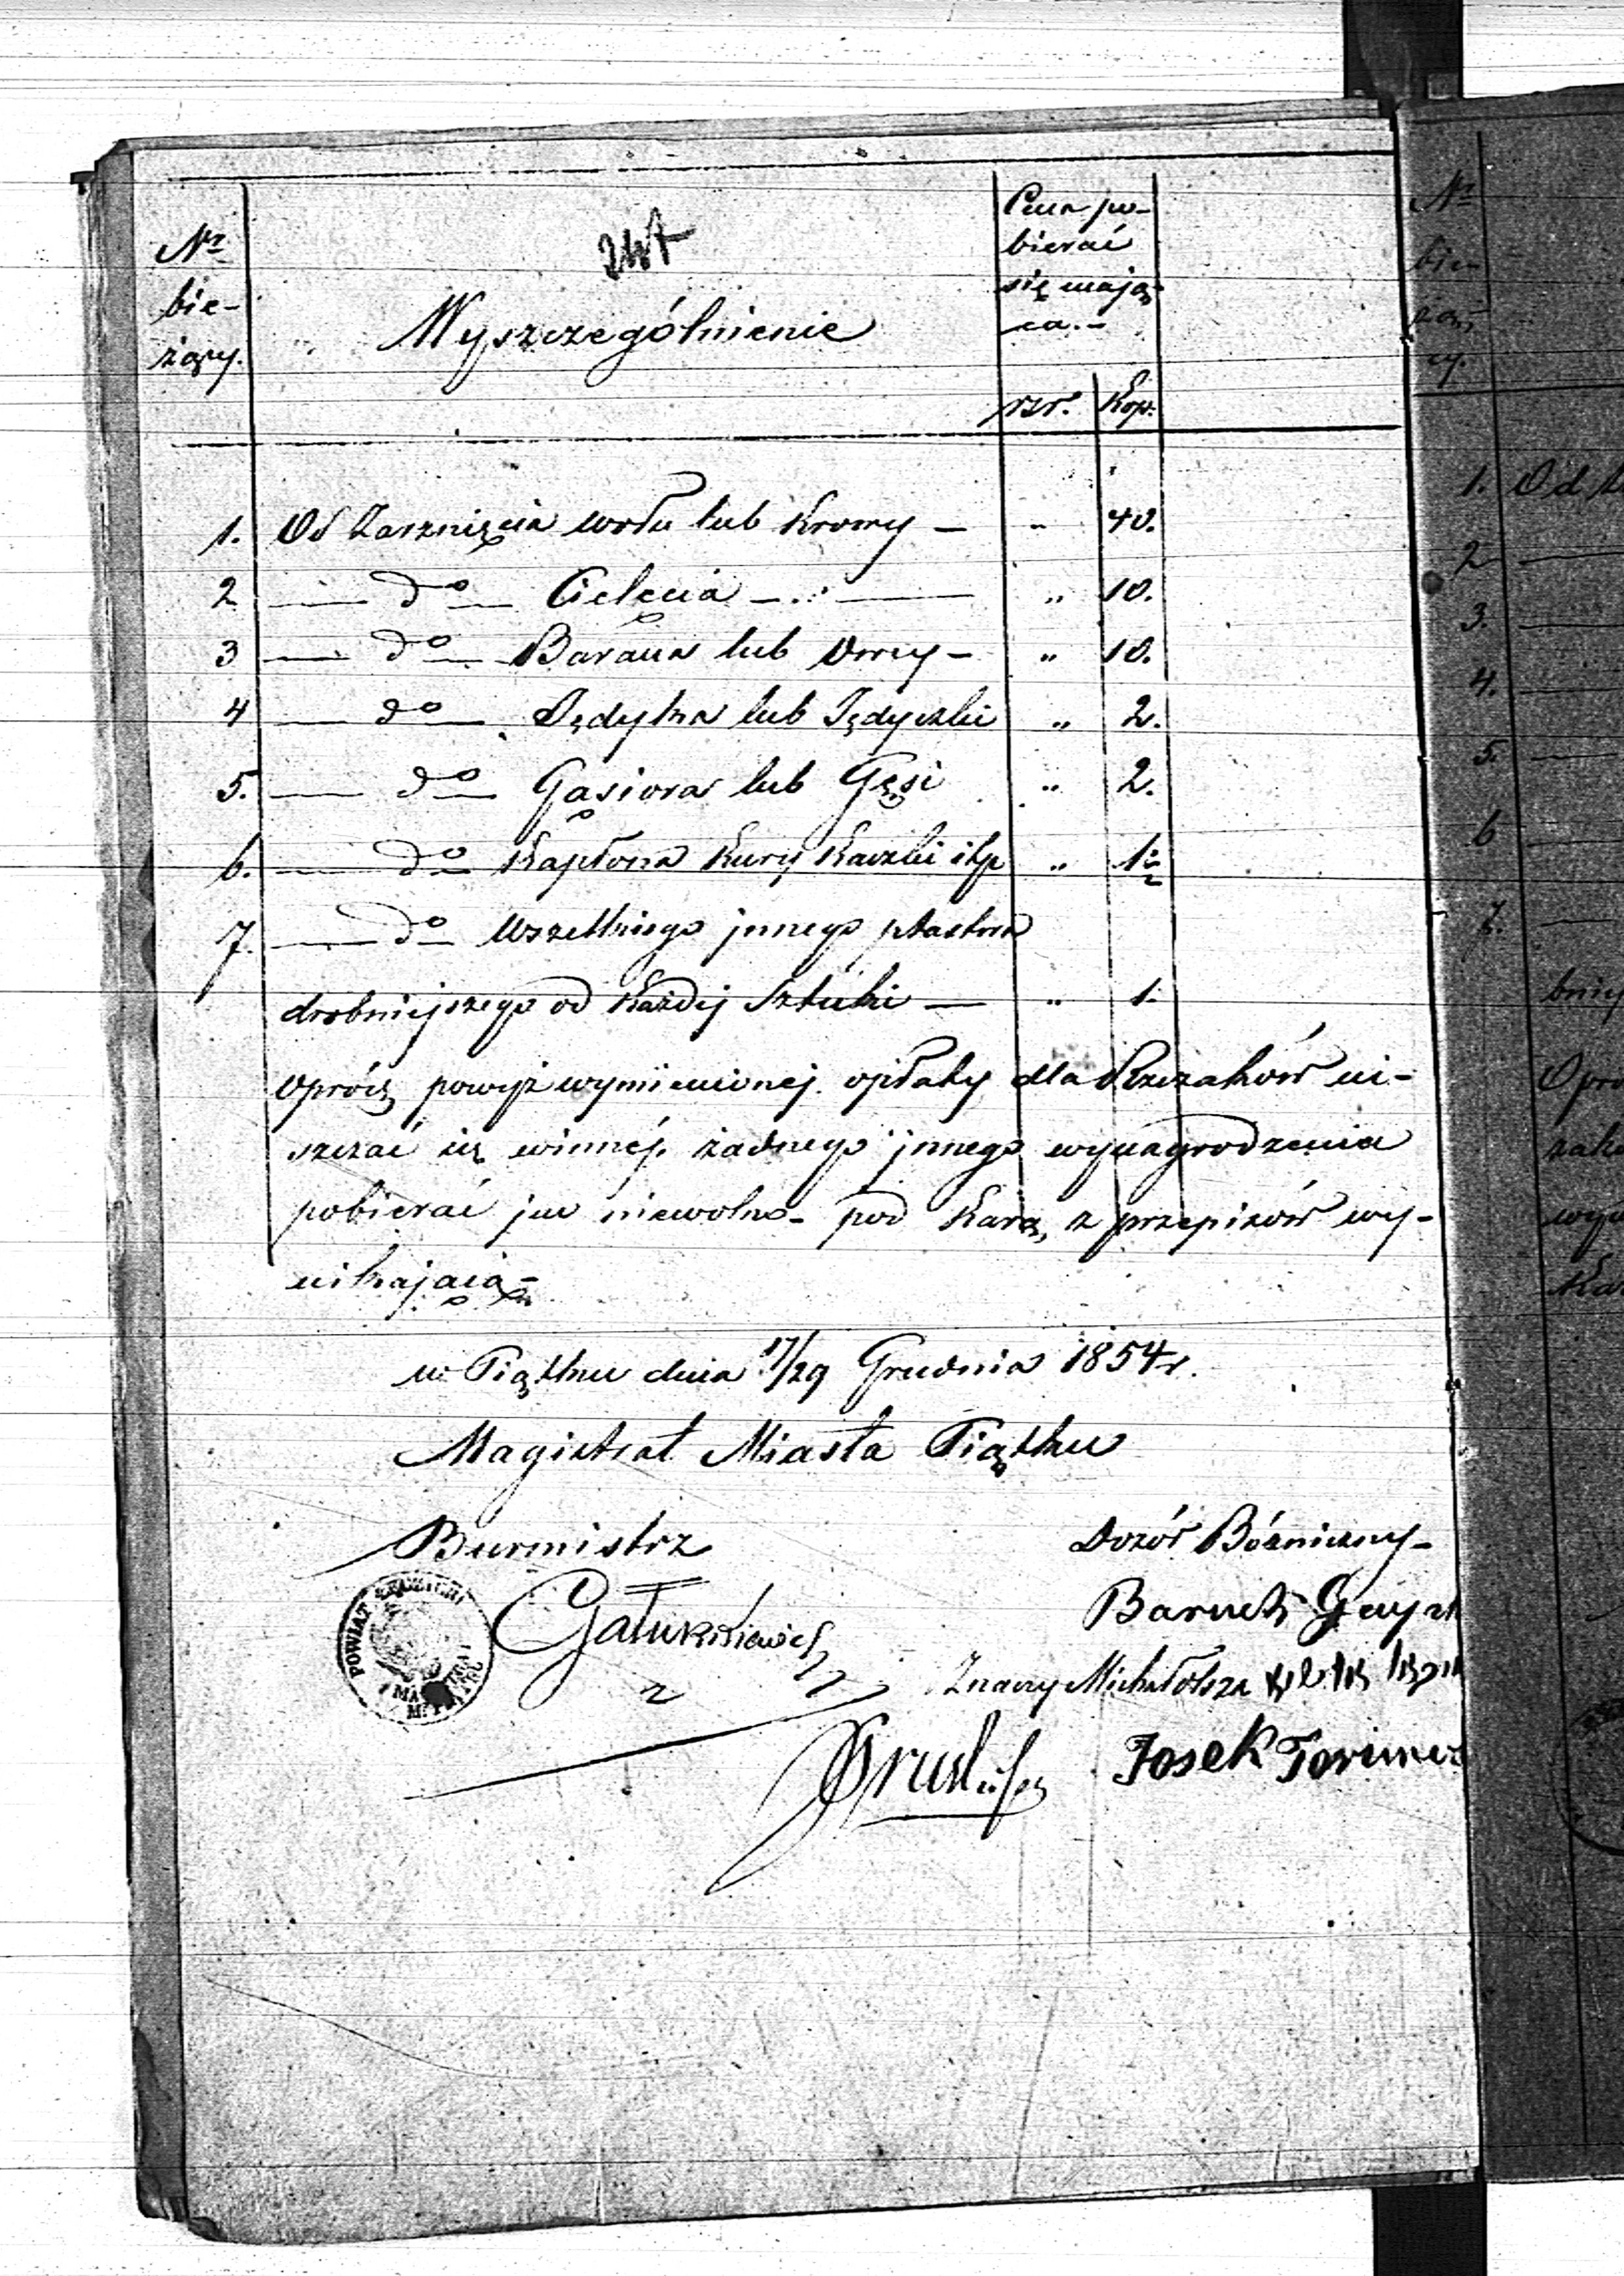 Nr bie- żący.
Wyszczególnienie
Cena po- bierać się mają- ca.-
rsr. Kop.
1. Od Zarznięcia wołu lub Krowy — „ 40.
2 — do — Cielęcia — „ 10.
3 — do — Barana lub Owcy — „ 10.
4 — do — Jędyka lub Jędyczki „ 2.
5. — do — Gąsiora lub Gęsi „ 2.
6. — do — Kapłona Kury Kaczki itp „ 1½
7. — do — Wszelkiego jnnego ptastwa
drobniejszego od Każdej Sztuki — „ 1.
Oprócz powyż wymienionej opłaty dla Rzezaków ui-
szczać się winnej, żadnego jnnego wynagrodzenia
pobierać jm niewolno- pod Karą, z przepisów wy-
nikającą-
w Piątku dnia 17/29 Grudnia 1854 r.
Magistrat Miasta Piątku
Burmistrz
Dozór Bóżniczny-
POWIAT ŁĘCZYCKI
Baruch
Znaczy Michał
Josek
Nr
bie-
żą,
cy.
1. Od
2
3.
4.
5.
6
7.